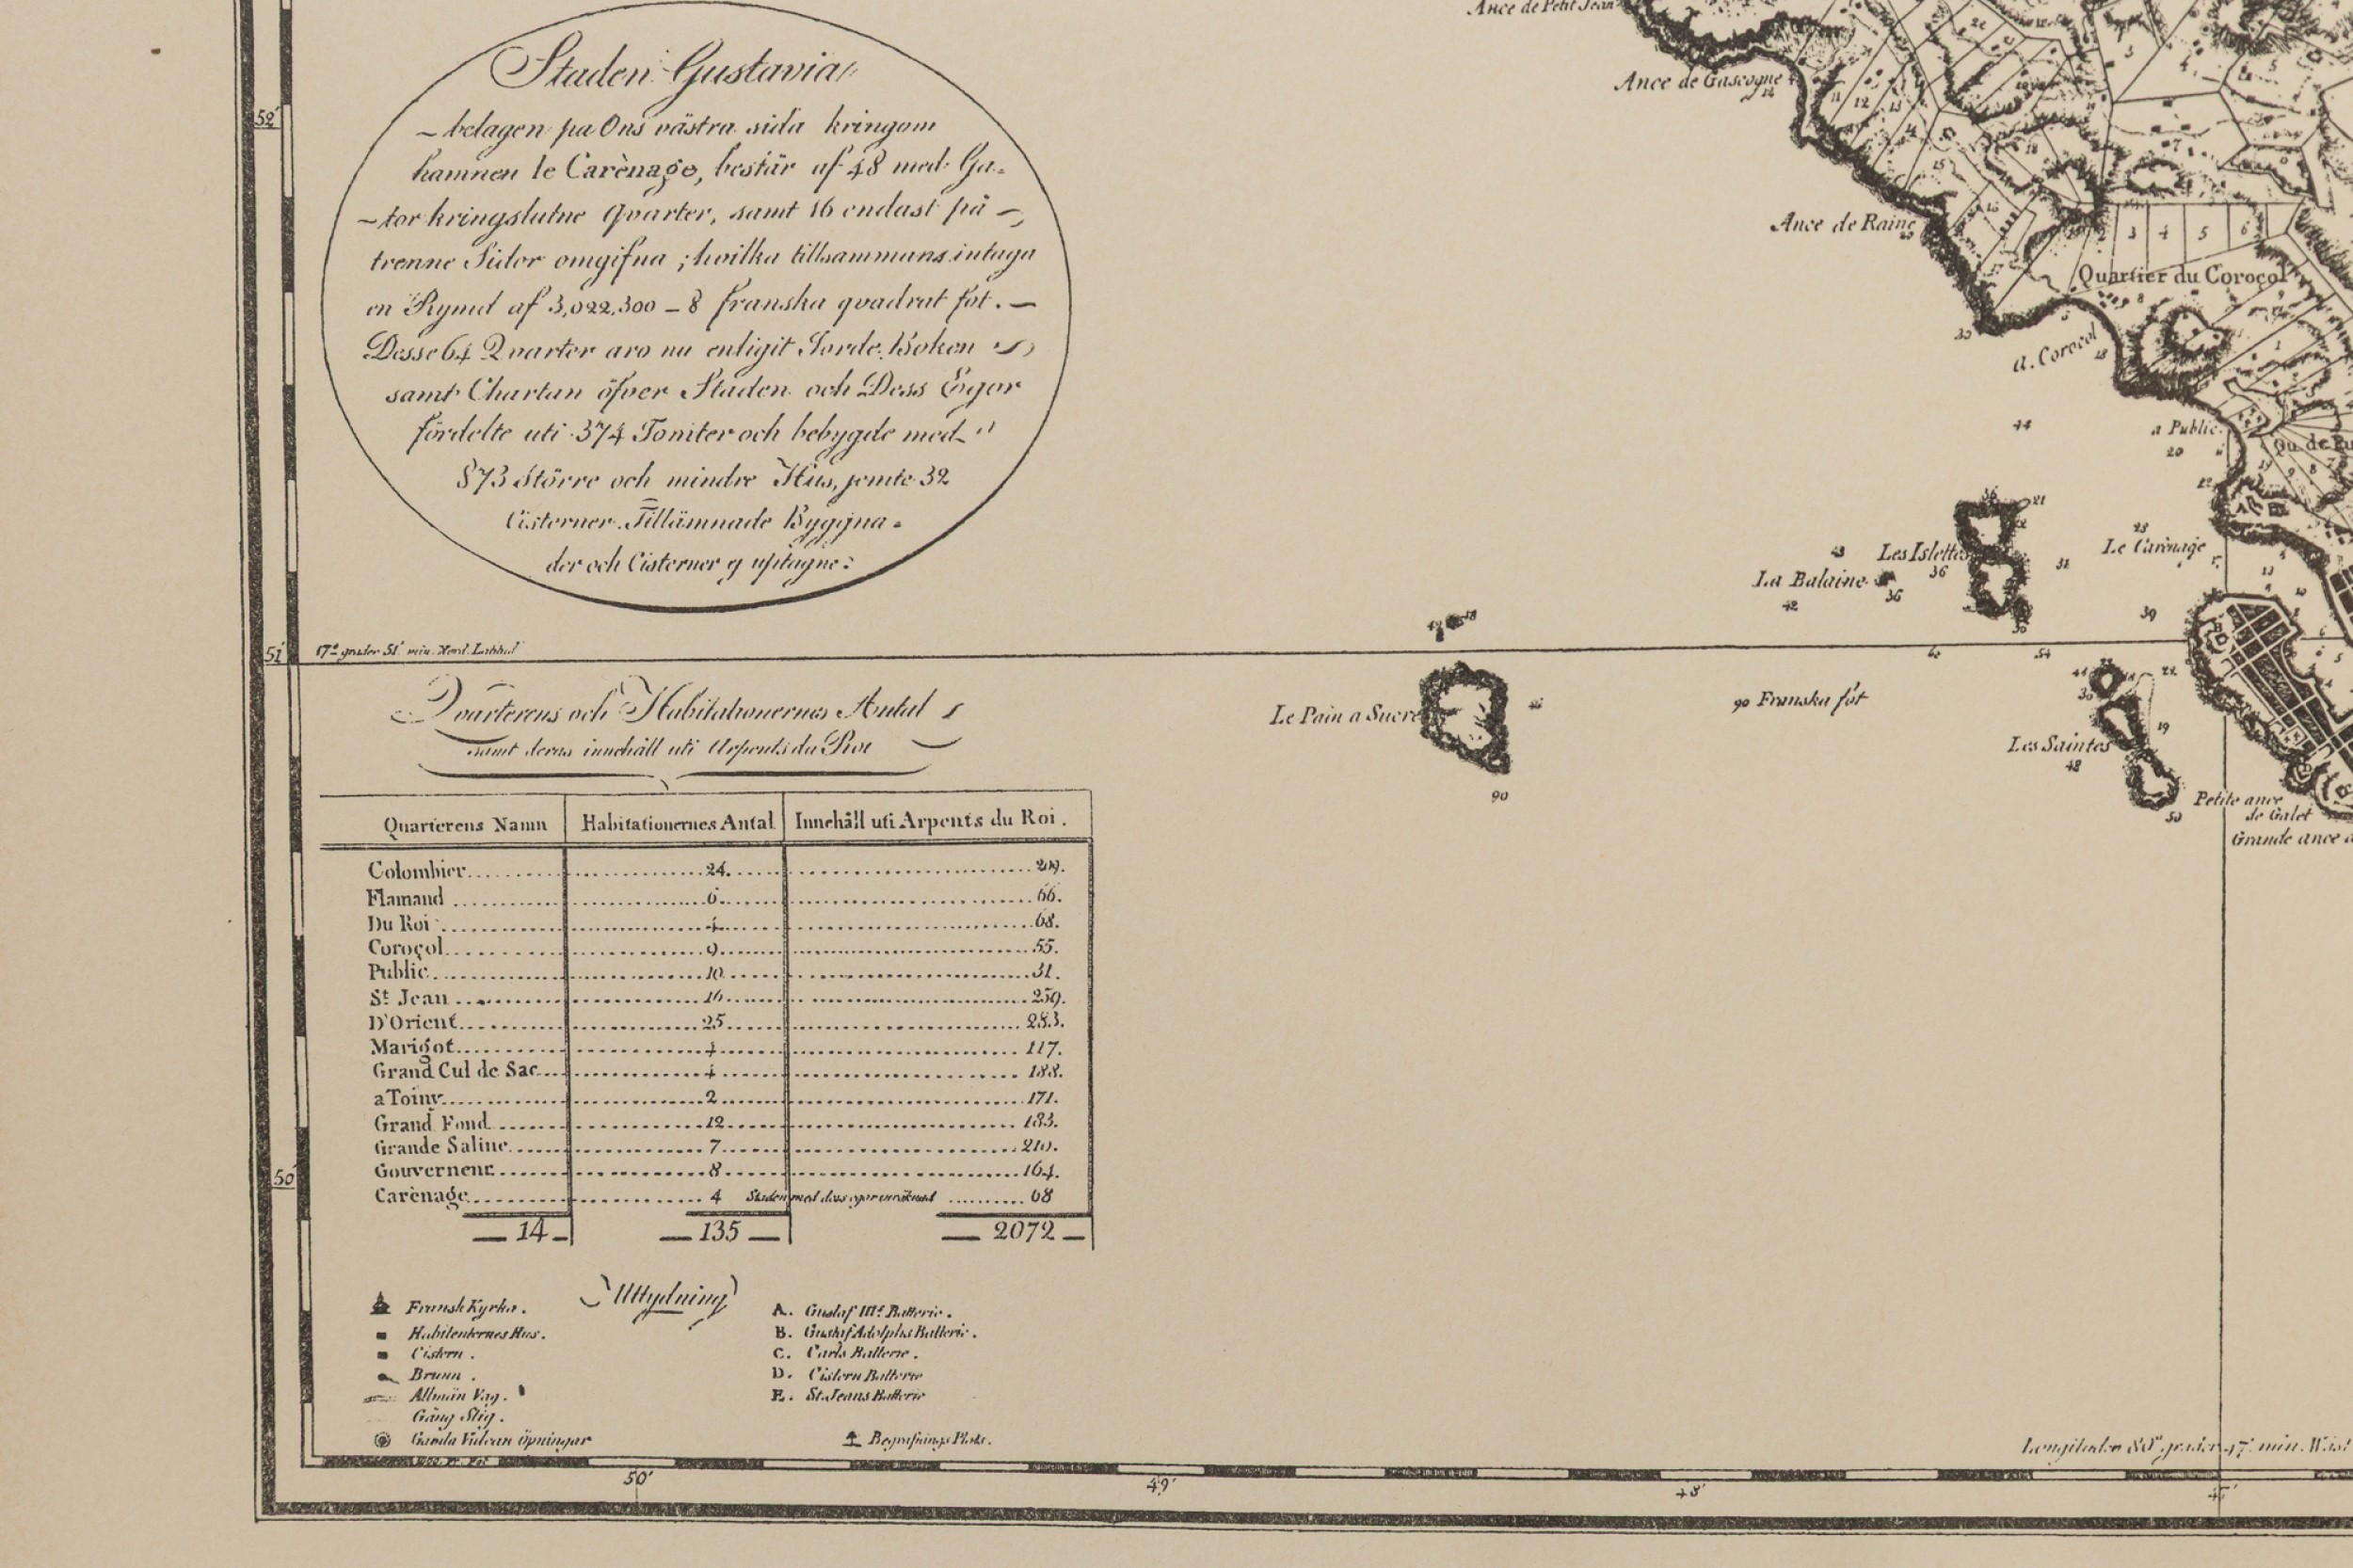 Staden Gustavia
belagen pa Öns västra sida kringom
hamnen le Carènage, består af 48 med Ga-
-tor kringslutne Qvarter, samt 16 endast på
trenne Sidor omgifna ; hvilka tillsammans intaga
en Rymd af 3,022,300 – 8 franska qvadrat fot. —
Desse 64 Qvarter äro nu enligit Jorde Boken
samt Chartan öfver Staden och Dess Egor
fördelte uti 374 Tomter och bebygde med
873 större och mindre Hus, jemte 32
Cisterner. Tillämnade Byggna-
der och Cisterner ej uptagne:
52'
51'
17de grader 51' min. Nord.
Qvarterens och Habitationernes Antal
samt deras innehåll uti Arpents du Roi
Quarterens Namn Habitationernes Antal Innehåll uti Arpents du Roi.
Colombier 24. 209.
Flamand 6 66.
Du Roi 4 68.
Coroçol 9 55.
Public 10 31.
St Jean 16 259.
D'Orient 25 283.
Marigot 4 117.
Grand Cul de Sac 4 188.
a Toiny 2 171.
Grand Fond 12 183.
Grande Saline 7 210.
Gouverneur 8 164.
Carènage 4 Staden med dess egor 68
— 14 — — 135 — — 2072 —
50'
Uttydning
Fransk Kyrka.
Habitenternes Hus.
Cistern.
Brunn.
Allmän Väg.
Gång Stig.
Gamla Vulcan öpningar
A. Gustaf IIIs Batterie.
B. Gustaf Adolphs Batterie.
C. Carls Batterie.
D. Cistern Batterie
E. St. Jeans Batterie
Begrafnings Plats.
50' 49' 48' 47'
Ance de Petit Jean
Ance de Gascogne
12
11 12 13
14
15
Ance de Raine
2 3 4 5 6
Quartier du Coroçol
30
a. Coroçol
18
44
a Public
20
12
Qu. de
9 8 7
21
43
Les Islettes
36
La Balaine
36
42
31
Le Carènage
39
Le Pain a Sucre
90
90 Franska fot
54
22
30
19
Les Saintes
48
50
Petite ance
de Galet
Grande ance
Longituden grader 47' min.